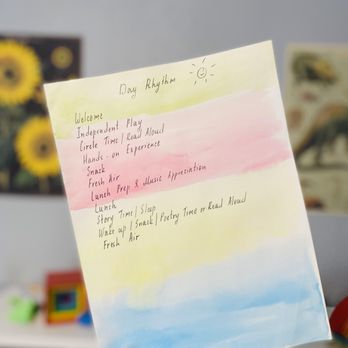 Day Rhythm
Welcome
Independent Play
Circle Time / Read Aloud
Hands-on Experience
Snack
Fresh Air
Lunch Prep & Music Appreciation
Lunch
Story Time / Sleep
Wake up / Snack / Poetry Time or Read Aloud
Fresh Air